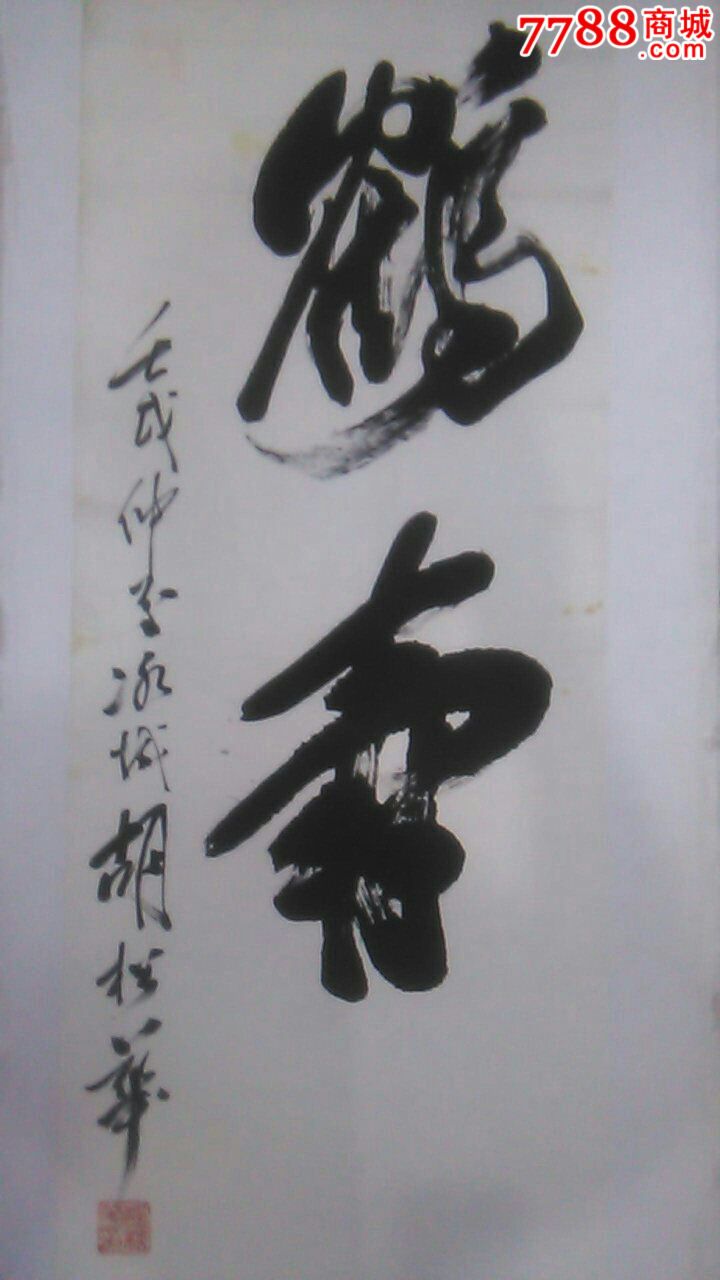 7788商城
.com
鶴
壬戌仲冰城胡松華